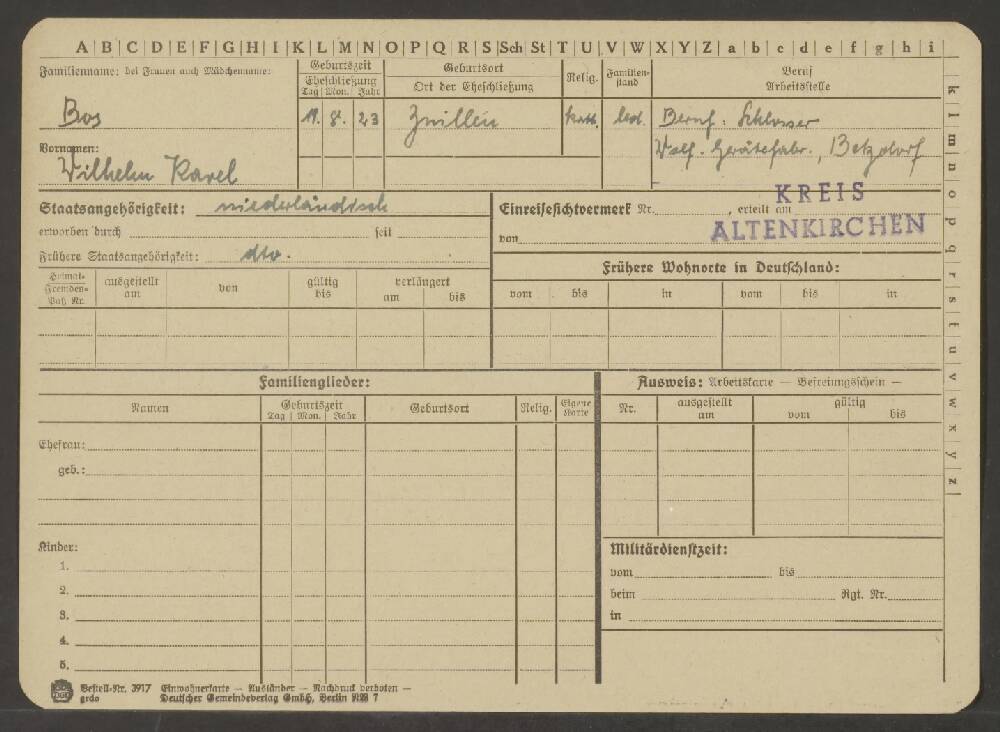 A B C D E F G H I K L M N O P Q R S Sch St T U V W X Y Z a b c d e f g h i
k l m n o p q r s t u v w x y z
Familienname: bei Frauen auch Mädchenname:
Geburtszeit
Eheschließung
Tag Mon. Jahr
Geburtsort
Ort der Eheschließung
Relig.
Familien-
stand
Beruf
Arbeitsstelle
Bos
19. 8. 23
kath.
led.
Beruf: Schlosser
Wolf-Gerätefabr., Betzdorf
Vornamen:
Wilhelm Karel
Staatsangehörigkeit: niederländisch
erworben durch seit
Frühere Staatsangehörigkeit: dto.
Einreisesichtvermerk Nr. , erteilt am
von
KREIS
ALTENKIRCHEN
Heimat-
Fremden-
Paß Nr.
ausgestellt
am
von
gültig
bis
verlängert
am bis
Frühere Wohnorte in Deutschland:
vom bis in vom bis in
Familienglieder:
Namen
Geburtszeit
Tag Mon. Jahr
Geburtsort
Relig.
Eigene
Karte
Ehefrau:
geb.:
Kinder:
1.
2.
3.
4.
5.
Ausweis: Arbeitskarte — Befreiungsschein —
Nr.
ausgestellt
am
gültig
vom bis
Militärdienstzeit:
vom bis
beim Rgt. Nr.
in
Bestell-Nr. 3917 Einwohnerkarte — Ausländer — Nachdruck verboten —
Deutscher Gemeindeverlag GmbH, Berlin NW 7